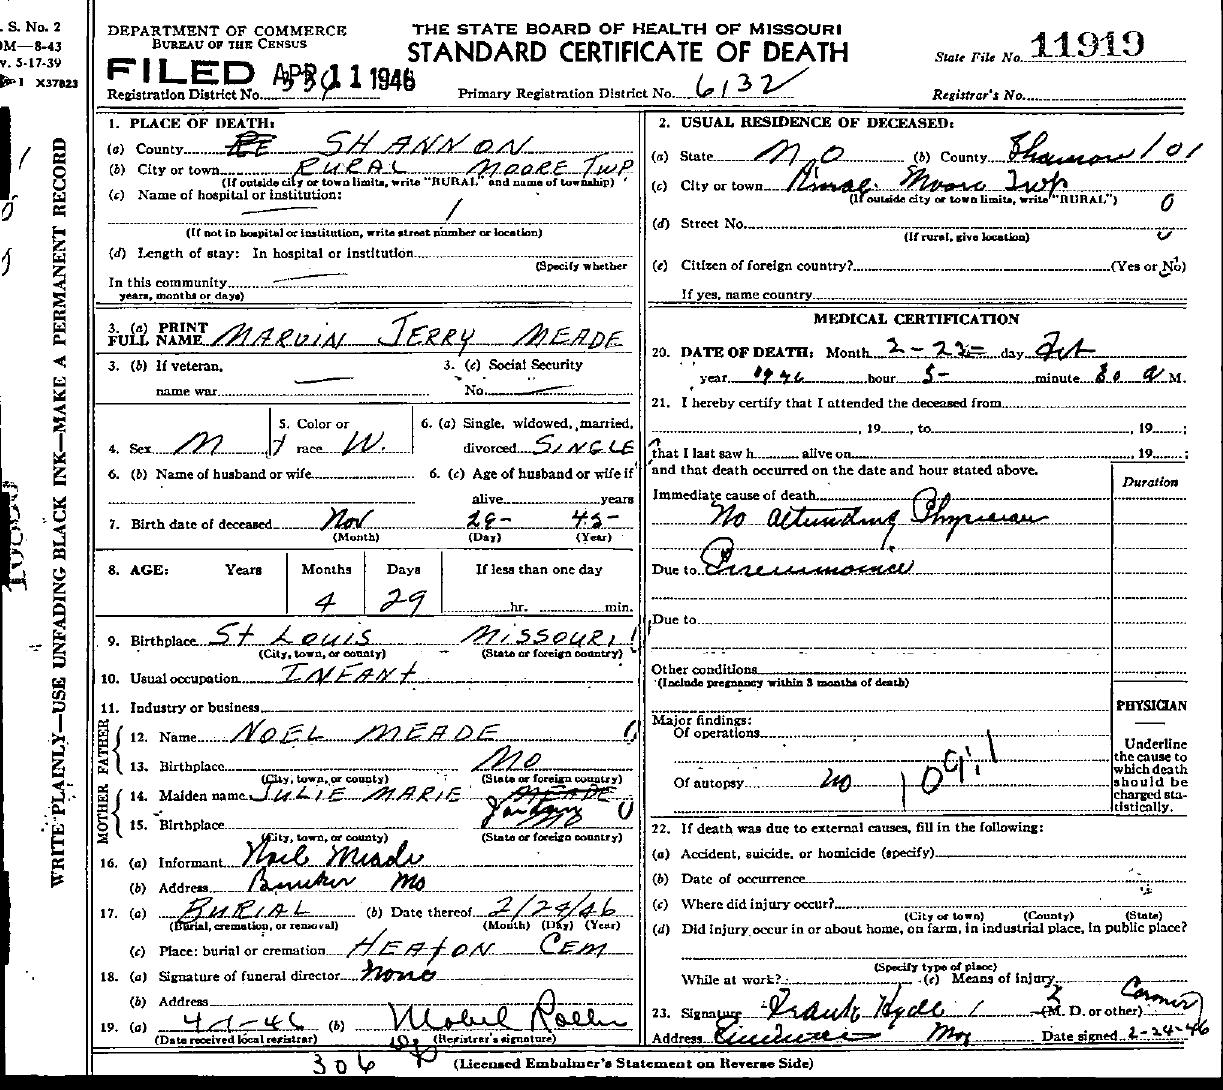 . S. No. 2
OM—8-43
v. 5-17-39
1 X37823
WRITE PLAINLY—USE UNFADING BLACK INK—MAKE A PERMANENT RECORD
DEPARTMENT OF COMMERCE
BUREAU OF THE CENSUS
THE STATE BOARD OF HEALTH OF MISSOURI
STANDARD CERTIFICATE OF DEATH
State File No. 11919
FILED APR 11 1946
Registration District No.
Primary Registration District No. 6132
Registrar's No.
1. PLACE OF DEATH:
(a) County SHANNON
(b) City or town RURAL MOORE TWP
(If outside city or town limits, write "RURAL" and name of township)
(c) Name of hospital or institution:
(If not in hospital or institution, write street number or location)
(d) Length of stay: In hospital or institution
(Specify whether
In this community
years, months or days)
3. (a) PRINT FULL NAME MARVIN JERRY MEADE
3. (b) If veteran, name war
3. (c) Social Security No.
4. Sex M
5. Color or race W.
6. (a) Single, widowed, married, divorced SINGLE
6. (b) Name of husband or wife
6. (c) Age of husband or wife if alive years
7. Birth date of deceased Nov 29- 45-
(Month) (Day) (Year)
8. AGE: Years Months Days If less than one day
4 29 hr. min.
9. Birthplace St LOUIS MISSOURI
(City, town, or county) (State or foreign country)
10. Usual occupation INFANT
11. Industry or business
FATHER
12. Name NOEL MEADE
13. Birthplace MO
(City, town, or county) (State or foreign country)
MOTHER
14. Maiden name JULIE MARIE MEADE
15. Birthplace MO
(City, town, or county) (State or foreign country)
16. (a) Informant Noel Meade
(b) Address Bunker Mo
17. (a) BURIAL (b) Date thereof 2/24/46
(Burial, cremation, or removal) (Month) (Day) (Year)
(c) Place: burial or cremation HEATON CEM
18. (a) Signature of funeral director None
(b) Address
19. (a) 4-1-46 (b) Mabel
(Date received local registrar) (Registrar's signature)
306
2. USUAL RESIDENCE OF DECEASED:
(a) State MO (b) County Shannon 101
(c) City or town Rural Moore Twp
(If outside city or town limits, write "RURAL") 0
(d) Street No.
(If rural, give location) 0
(e) Citizen of foreign country? (Yes or No)
If yes, name country
MEDICAL CERTIFICATION
20. DATE OF DEATH: Month 2-22 day Feb
year 1946 hour 5- minute 30 a M.
21. I hereby certify that I attended the deceased from
, 19 , to , 19 ;
that I last saw h alive on , 19 ;
and that death occurred on the date and hour stated above.
Duration
Immediate cause of death
No attending Physician
Due to Pneumonia
Due to
Other conditions
(Include pregnancy within 3 months of death)
Major findings:
Of operations
Of autopsy no
PHYSICIAN
Underline
the cause to
which death
should be
charged sta-
tistically.
22. If death was due to external causes, fill in the following:
(a) Accident, suicide, or homicide (specify)
(b) Date of occurrence
(c) Where did injury occur?
(City or town) (County) (State)
(d) Did injury occur in or about home, on farm, in industrial place, in public place?
(Specify type of place)
While at work? (e) Means of injury
23. Signature Frank Hyde (M. D. or other) Coroner
Address Eminence Mo Date signed 2-24-46
(Licensed Embalmer's Statement on Reverse Side)